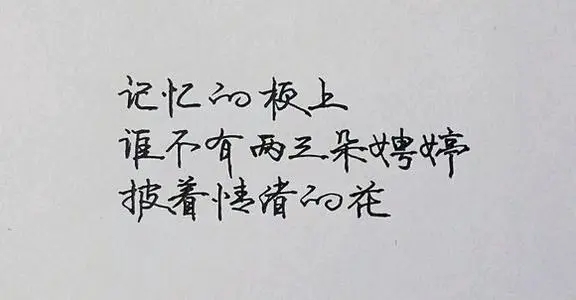 记忆的梗上
谁不有两三朵娉婷
披着情绪的花